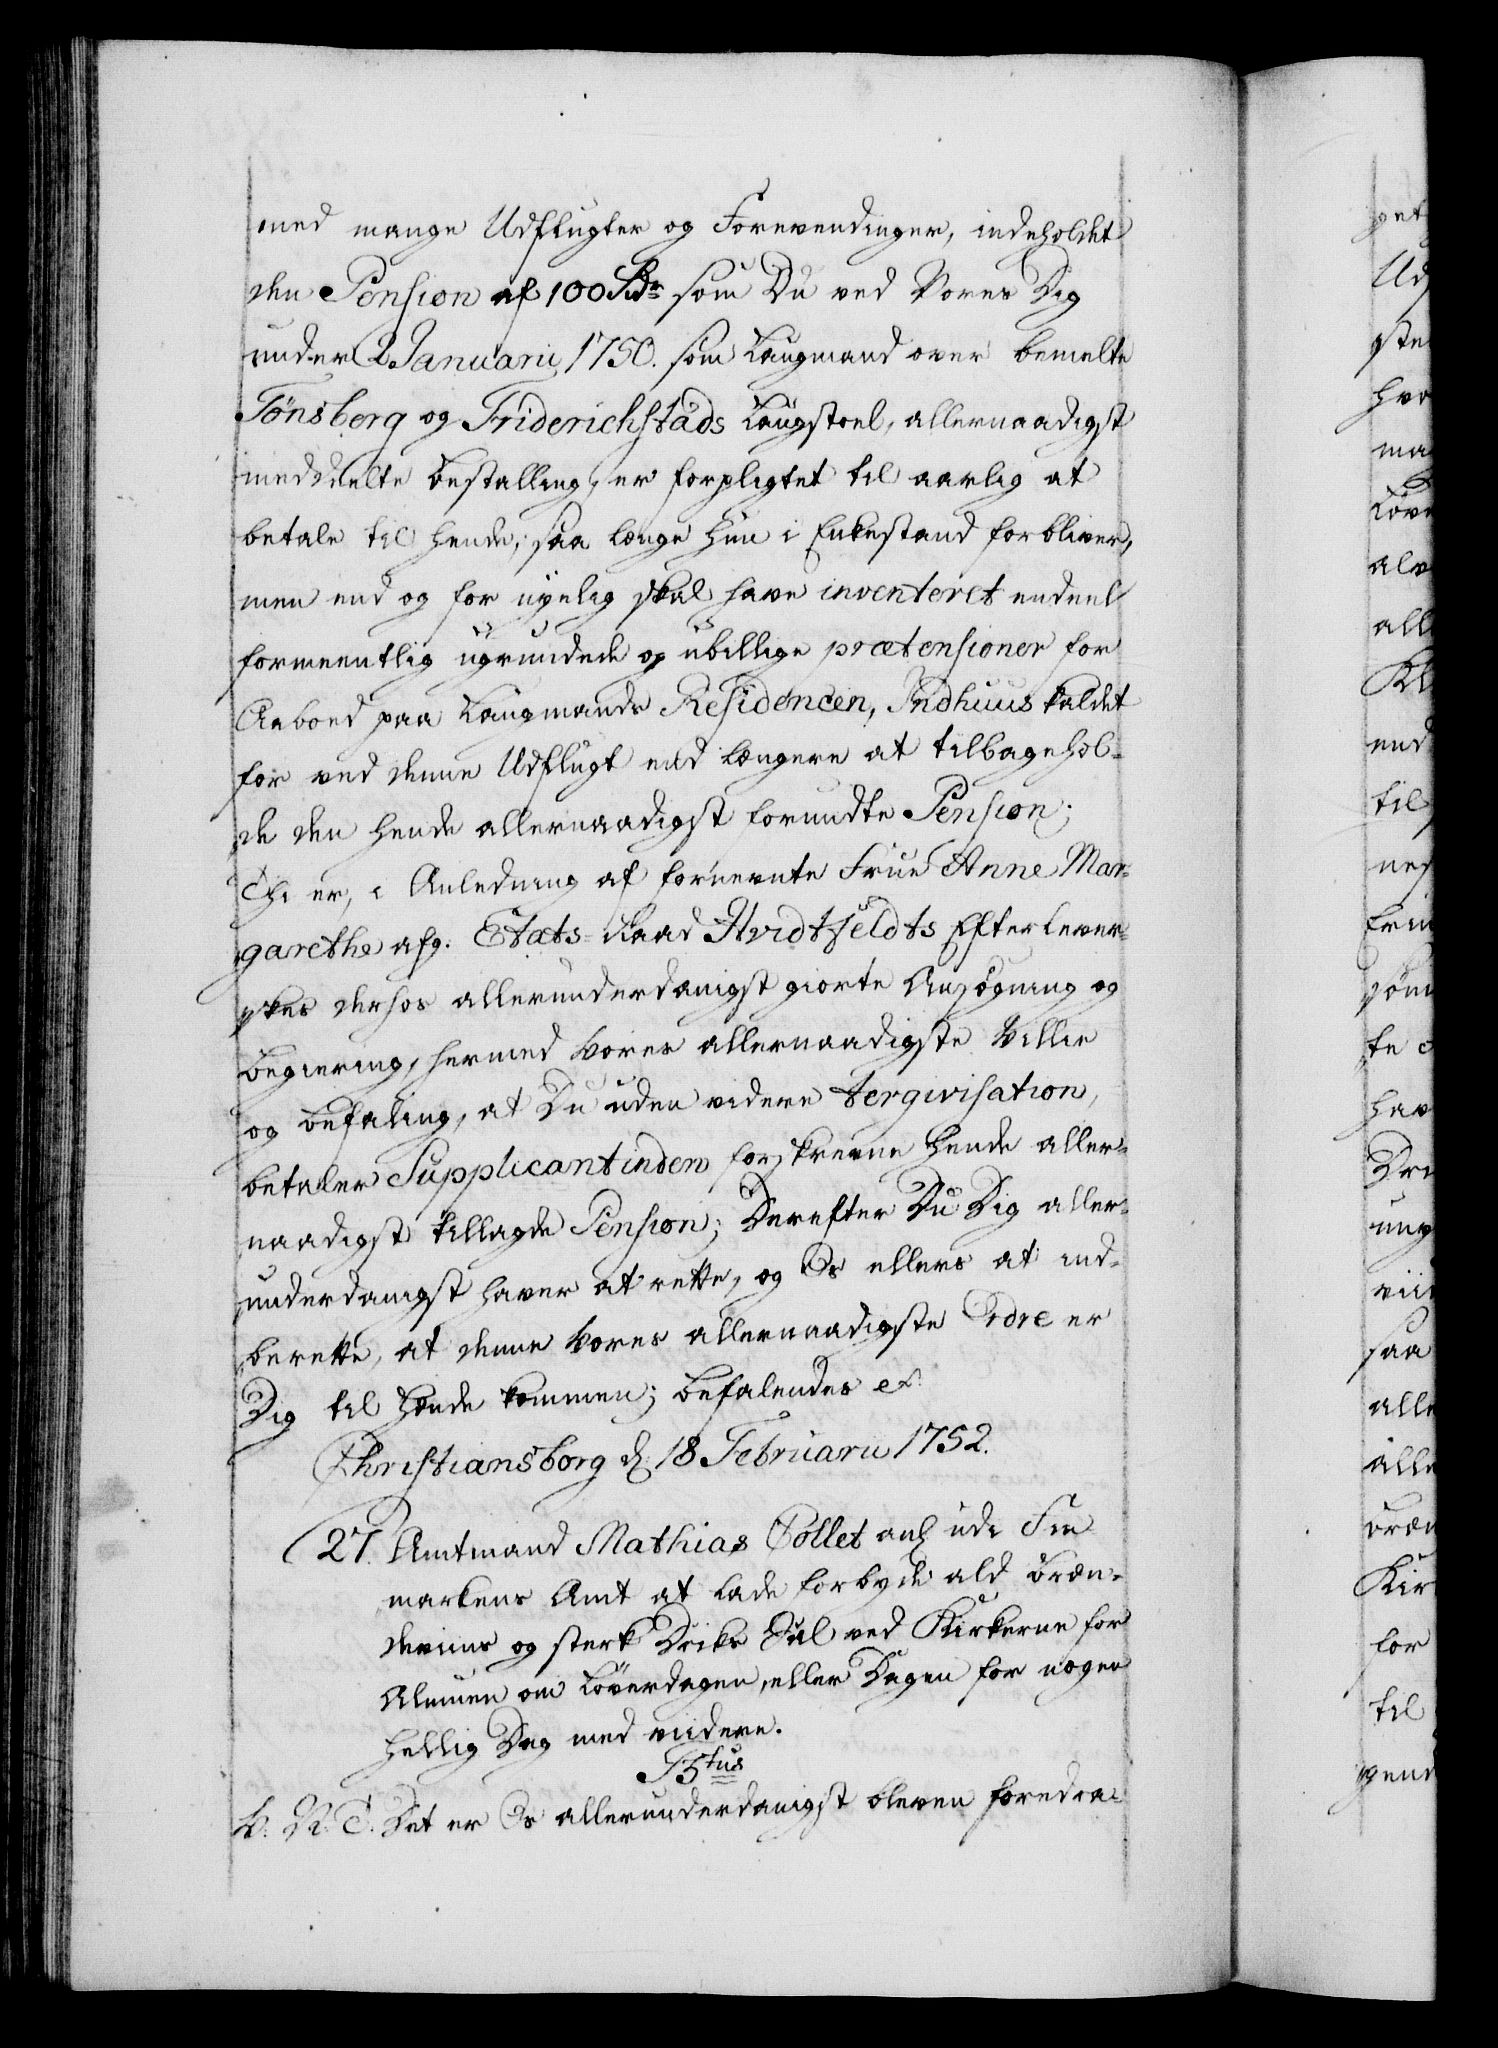 med mange Udflugter og Forevendinger, indeholdet
den Pension af 100 Rdr som Du ved Vores Dig
under 2 Januarii 1750. som Laugmand over bemelte
Tönsberg og Friderichstads Laugstoel, allernaadigst
meddeelte Bestalling, er forpligtet til aarlig at
betale til hende, saa længe hun i Enkestand forbliver,
men end og for nyelig skal have inventeret endeel
formeentlig ugrundede og ubillige prætensioner for
Aaboed paa Laugmands Residencen, Indhuus kaldet
for ved denne Udflugt end længere at tilbagehol-
de den hende allernaadigst forundte Pension;
Thi er, i Anledning af fornevnte Frue Anne Mar-
garethe afg. Etats-Raad Hvidtfeldts Efterlever-
skes derhos allerunderdanigst giorte Ansögning og
Begiering, hermed Vores allernaadigste Villie
og Befaling, at Du uden videre tergivisation,
betaler Supplicantinden forskrevne hende aller-
naadigst tillagde Pension; Derefter Du Dig aller-
underdanigst haver at rette, og Os ellers at ind-
berette, at denne Vores allernaadigste Ordre er
Dig til Hænde kommen; Befalendes etc.
Christiansborg d. 18 Februarii 1752.
27. Amtmand Mathias Collet anl. udi Fin-
markens Amt at lade forbyde ald Bræn-
deviins og sterk Driks Sal ved Kirkerne for
Almuen om Löverdagen, eller Dagen for nogen
hellig Dag med viidere.
F5tus
V. N. T. Det er Os allerunderdanigst bleven foredra-